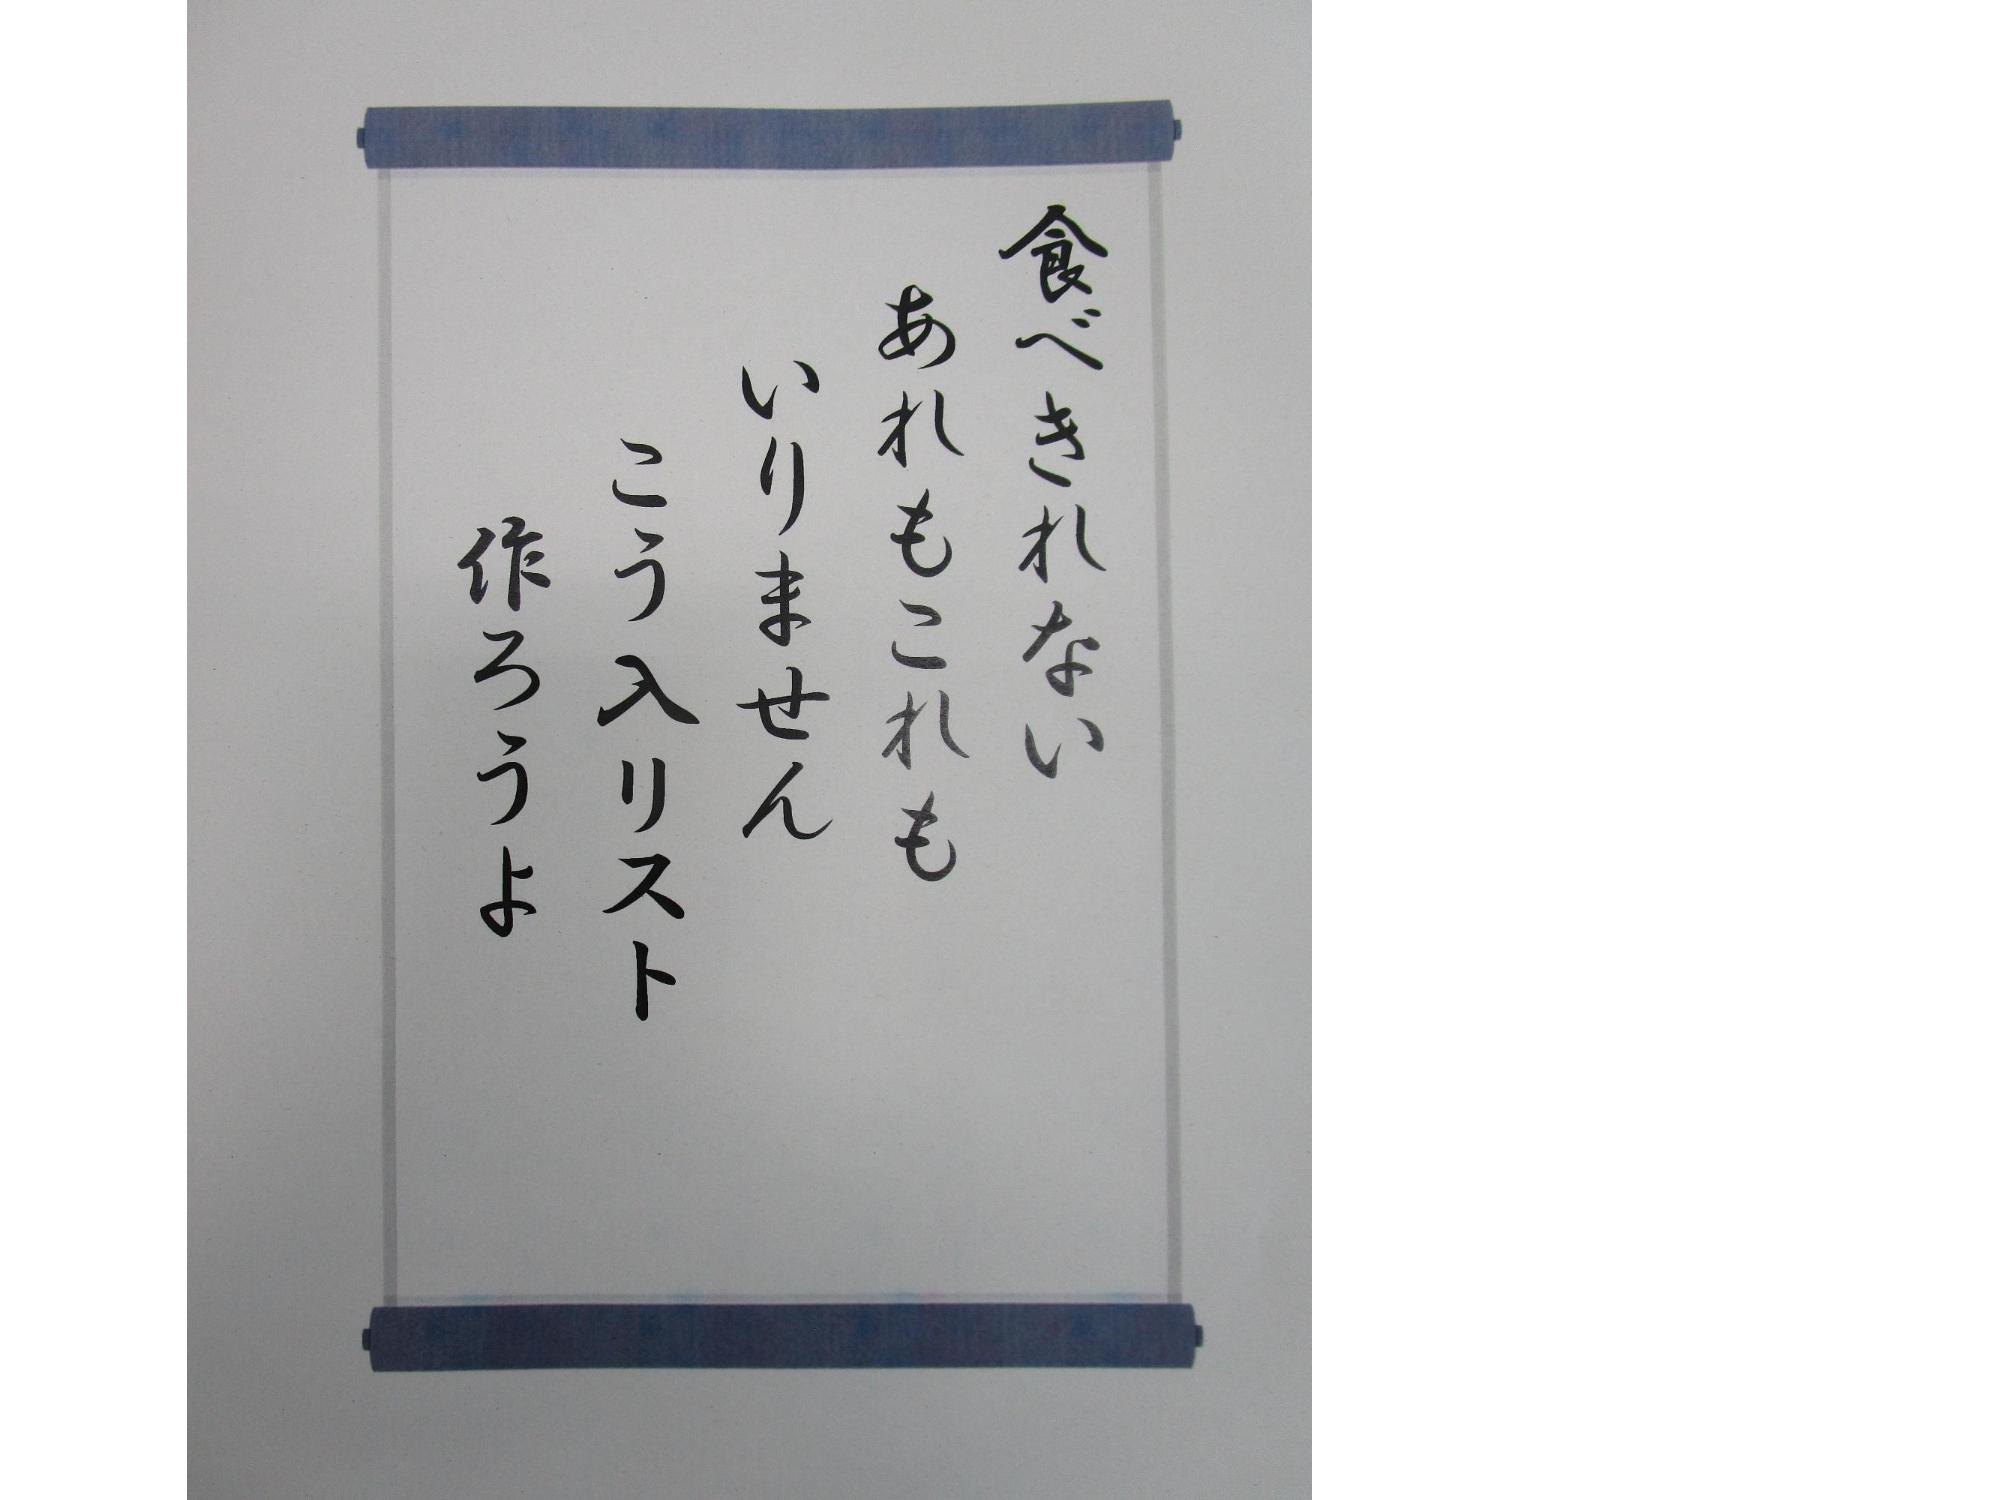 食べきれない
あれもこれも
いりません
こう入リスト
作ろうよ